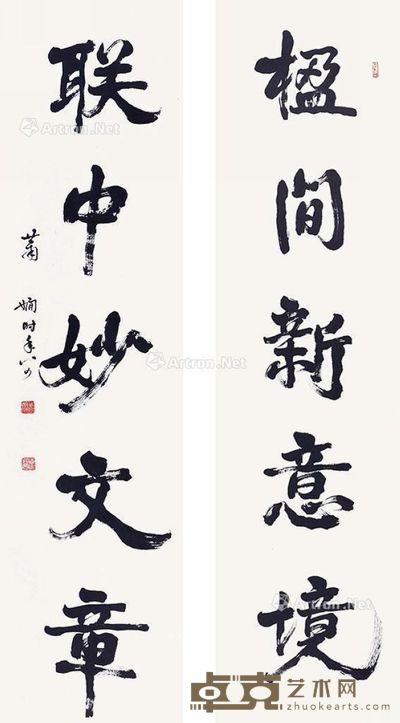 楹间新意境
联中妙文章
萧娴时年八
Artron.Net
Artron.Net
Artron.Net
Artron.Net
卓克艺术网
zhuokearts.com